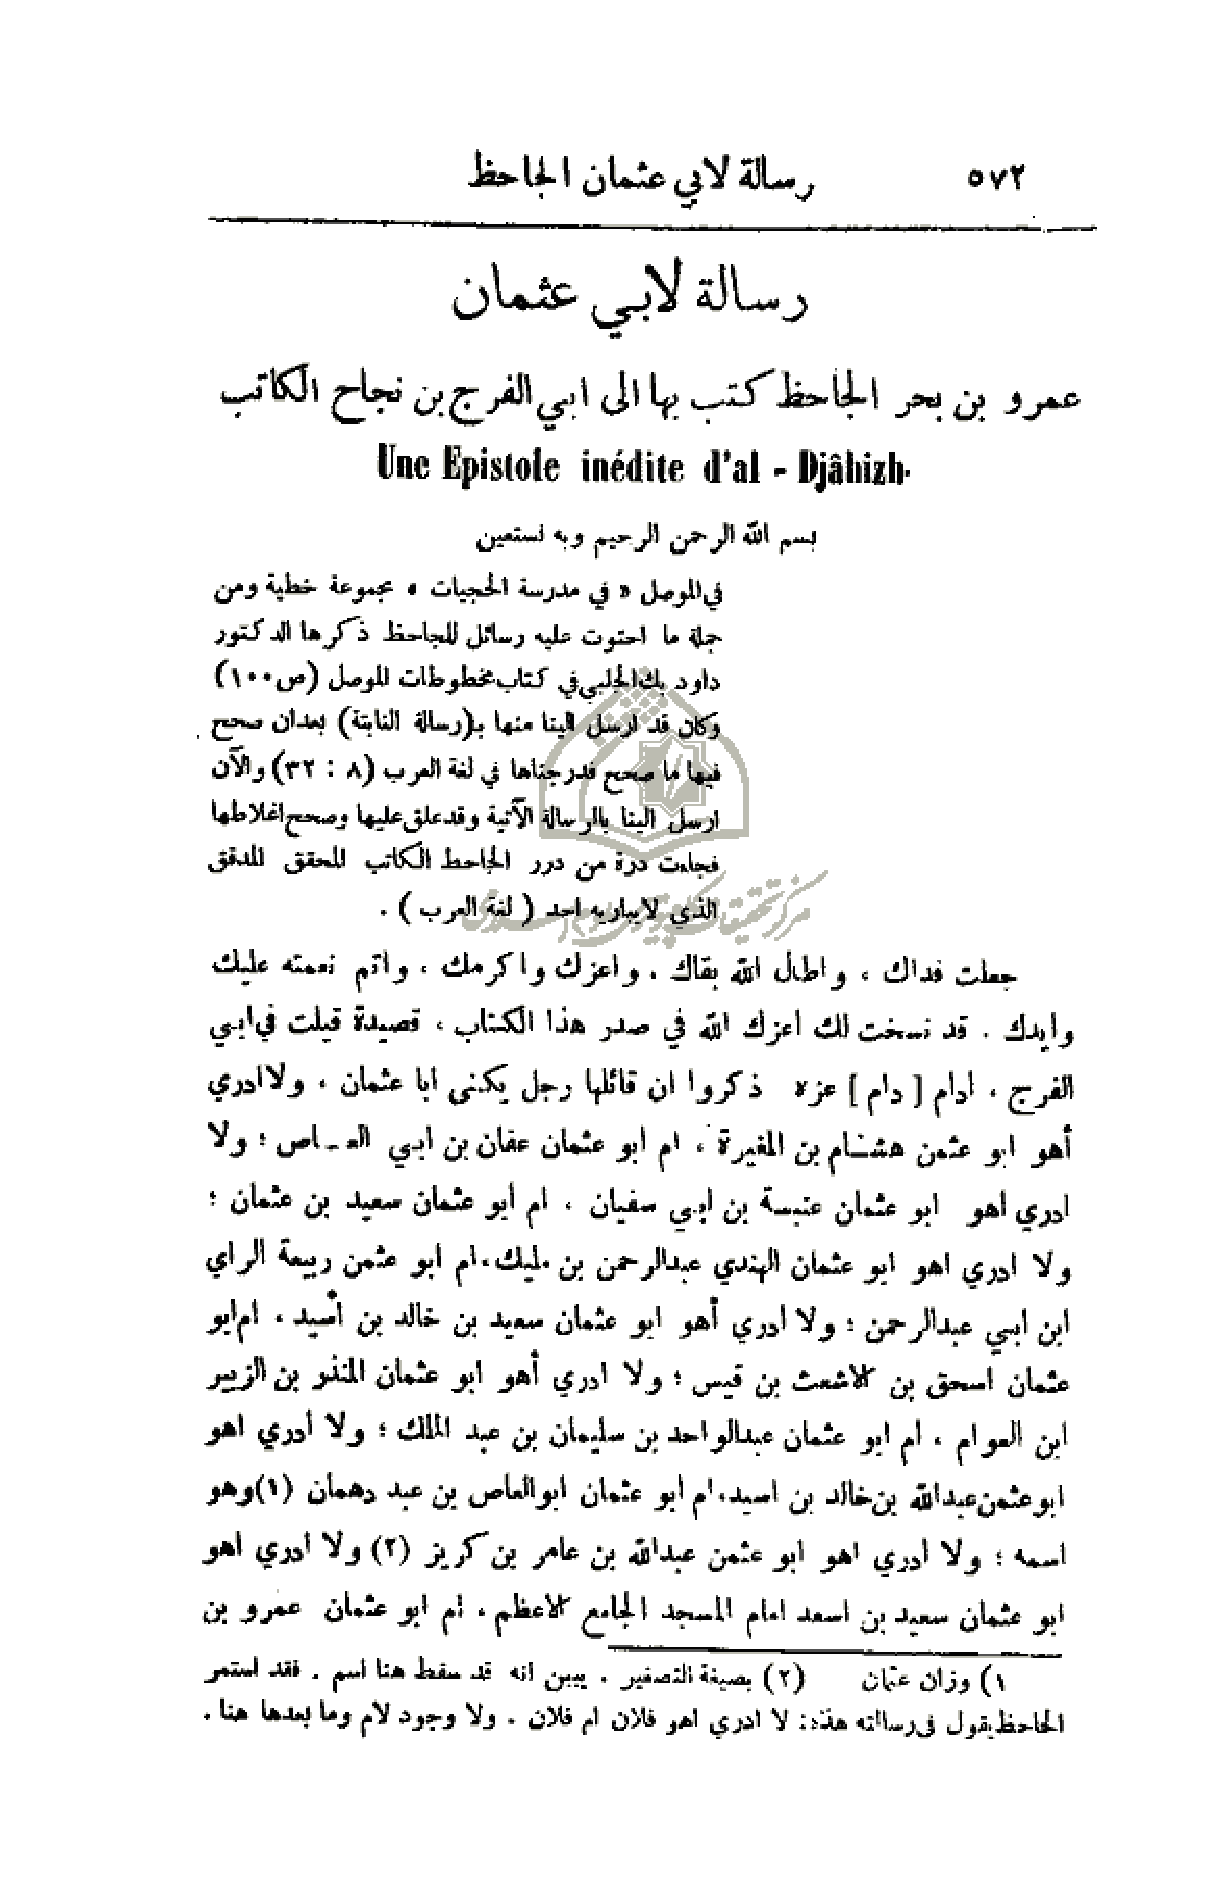 ٥٧٢ رسالة لابي عثمان الجاحظ
رسالة لابي عثمان
عمرو بن بحر الجاحظ كتب بها الى ابي الفرج بن نجاح الكاتب
Une Epistole inédite d'al - Djâhizh.
بسم الله الرحمن الرحيم وبه نستعين
في الموصل « في مدرسة الحجيات » مجموعة خطية ومن
جملة ما احتوت عليه رسائل للجاحظ ذكرها الدكتور
داود بك الجلبي في كتاب مخطوطات الموصل (ص١٠٠)
وكان قد ارسل الينا منها بـ(رسالة النابتة) بعدان صحح
فيها ما صحح فدرجناها في لغة العرب (٨ : ٣٢) والآن
ارسل الينا بالرسالة الآتية وقد علق عليها وصحح اغلاطها
فجاءت درة من درر الجاحظ الكاتب المحقق المدقق
الذي لا يباريه احد ( لغة العرب ) .
جعلت فداك ، واطال الله بقاك . واعزك واكرمك ، واتم نعمته عليك
وأيدك . قد نسخت لك اعزك الله في صدر هذا الكتاب ، قصيدة قيلت في ابي
الفرج ، أدام [ دام ] عزه ذكروا ان قائلها رجل يكنى ابا عثمان ، ولا ادري
أهو ابو عثمن هشام بن المغيرة ، ام ابو عثمان عفان بن ابي العـاص ؛ ولا
ادري اهو ابو عثمان عنبسة بن أبي سفيان ، ام أبو عثمان سعيد بن عثمان ؛
ولا ادري اهو ابو عثمان الهندي عبدالرحمن بن مليك، ام ابو عثمن ربيعة الراي
ابن ابي عبدالرحمن ؛ ولا أدري أهو ابو عثمان سعيد بن خالد بن أسيد ، ام ابو
عثمان اسحق بن الاشعث بن قيس ؛ ولا ادري أهو ابو عثمان المنذر بن الزبير
ابن العوام ، أم ابو عثمان عبدالواحد بن سليمان بن عبد الملك ؛ ولا أدري اهو
ابو عثمن عبدالله بن خالد بن اسيد، ام أبو عثمان ابوالعاص بن عبد دهمان (١) وهو
اسمه ؛ ولا أدري اهو ابو عثمن عبدالله بن عامر بن كريز (٢) ولا ادري اهو
ابو عثمان سعيد بن اسعد امام المسجد الجامع الاعظم ، ام ابو عثمان عمرو بن
١) وزان عثمان (٢) بصيغة التصغير . يبين انه قد سقط هنا اسم . فقد استمر
الجاحظ يقول في رسالته هذه: لا ادري اهو فلان ام فلان . ولا وجود لام وما بعدها هنا .